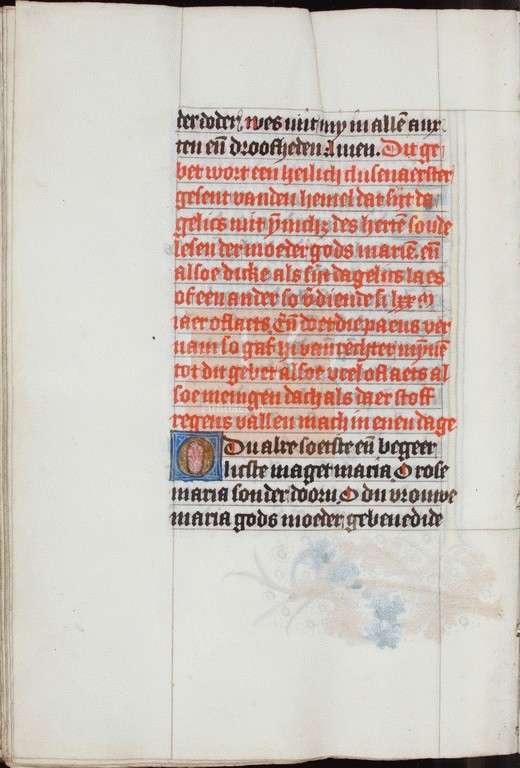 der doder, wes mit my in allē anx
ten eñ droofheden Amen. Dit ge
bet wort een heilich clusenaerster
gesent vanden hemel dat sijt da
gelics mit ynnich; des hertē soude
lesen der moeder gods mariē. eñ
alsoe dicke als sijt dagelics laes
of een ander so v̄diende si lxx ꝳ
iaer oflaets. Eñ doe die paeus ver
nam so gaf hi van rechter mynnē
tot dit gebet alsoe veel oflaets al
soe menigen dach als daer stoff
regens vallen mach in enen dage
O Du alre soetste eñ begeer
licste maget maria O rose
maria sonder doorn O du vrouwe
maria gods moeder gebenedide